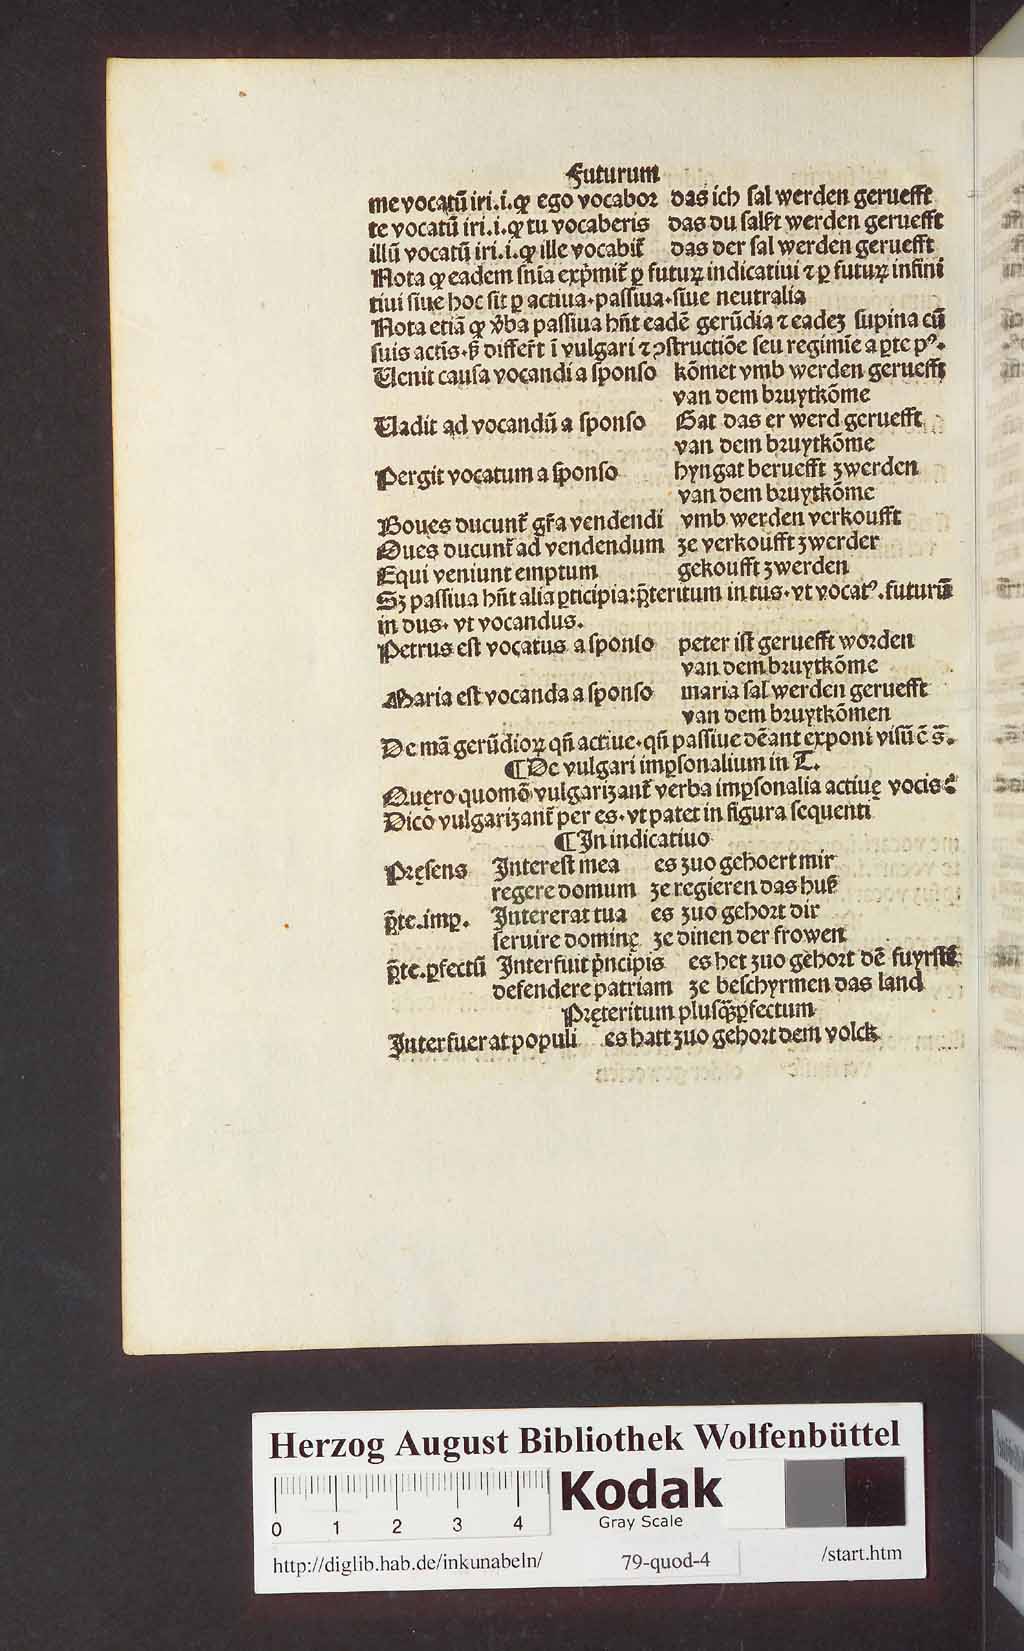 Futurum
me vocatū iri.i.ꝙ ego vocabor das ich sal werden geruefft
te vocatū iri.i.ꝙ tu vocaberis das du salst werden geruefft
illū vocatū iri.i.ꝙ ille vocabit̄ das der sal werden geruefft
Nota ꝙ eadem sn̄ia exp̄mit̄ ꝑ futuꝝ indicatiui ⁊ ꝑ futuꝝ infini
tiui siue hoc sit ꝑ actiua.passiua.siue neutralia
Nota etiā ꝙ v̄ba passiua hn̄t eadē gerūdia ⁊ eadeʒ supina cū
suis actīs.ꝫ differt̄ ī vulgari ⁊ ꝯstructiōe seu regimīe a ꝑte pꝰ.
Uenit causa vocandi a sponso kōmet vmb werden geruefft
van dem bruytkōme
Uadit ad vocandū a sponso Gat das er werd geruefft
van dem bruytkōme
Pergit vocatum a sponso hyngat beruefft zwerden
van dem bruytkōme
Boues ducunt̄ gr̄a vendendi vmb werden verkoufft
Oues ducunt̄ ad vendendum ze verkoufft zwerder
Equi veniunt emptum gekoufft zwerden
Sʒ passiua hn̄t alia ꝑticipia:p̄teritum in tus.vt vocatꝰ.futurū
in dus. vt vocandus.
Petrus est vocatus a sponso peter ist geruefft worden
van dem bruytkōme
Maria est vocanda a sponso maria sal werden geruefft
van dem bruytkōmen
De mā gerūdioꝝ qn̄ actiue.qn̄ passiue dēant exponi visū ē s̄.
¶ De vulgari imꝑsonalium in T.
Quęro quomō vulgarizant̄ verba imꝑsonalia actiuę vocis
Dico vulgarizant̄ per es.vt patet in figura sequenti
¶ In indicatiuo
Pręsens Interest mea es zuo gehoert mir
regere domum ze regieren das huß
p̄te.imꝑ. Intererat tua es zuo gehort dir
seruire dominę ze dinen der frowen
p̄te.ꝑfectū Interfuit p̄ncipis es het zuo gehort dē fuyrstē
defendere patriam ze beschyrmen das land
Pręteritum plusq̄ꝑfectum
Interfuerat populi es hatt zuo gehort dem volck
Herzog August Bibliothek Wolfenbüttel
0 1 2 3 4
Kodak
Gray Scale
http://diglib.hab.de/inkunabeln/ 79-quod-4 /start.htm